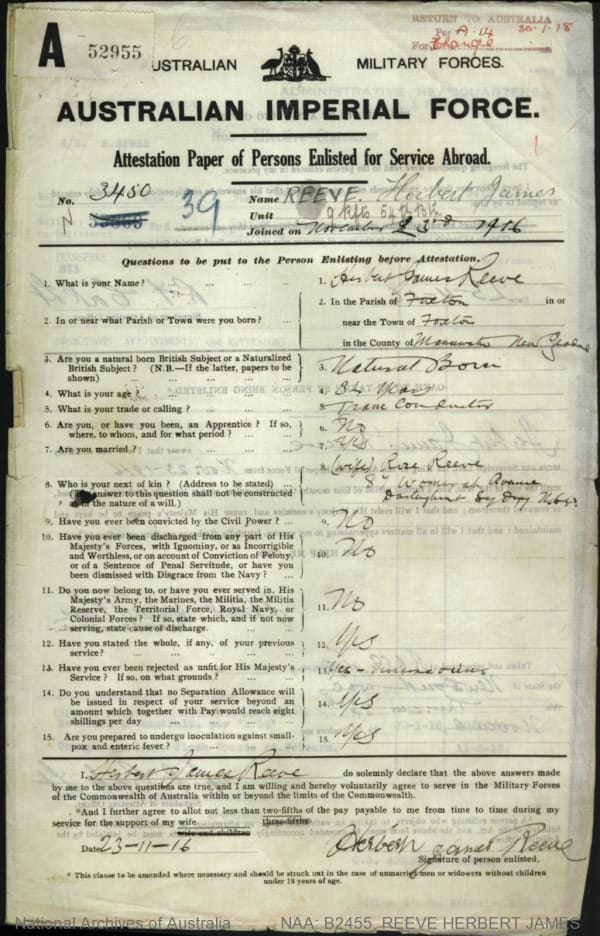 RETURN TO AUSTRALIA
Per A.14 30-1-18
For Change
A 52955
AUSTRALIAN MILITARY FORCES.
AUSTRALIAN IMPERIAL FORCE.
Attestation Paper of Persons Enlisted for Service Abroad.
No. 3450 39 Name REEVE. Herbert James
N Unit 9 Rfts 54th Btn
Joined on November 23rd 1916
Questions to be put to the Person Enlisting before Attestation.
1. What is your Name? ... 1. Herbert James Reeve
2. In or near what Parish or Town were you born? ... 2. In the Parish of Foxton in or
near the Town of Foxton
in the County of Manawatu New Zealand
3. Are you a natural born British Subject or a Naturalized
British Subject? (N.B.—If the latter, papers to be
shown) ... 3. Natural Born
4. What is your age? ... 4. 34 Years
5. What is your trade or calling? ... 5. Tram Conductor
6. Are you, or have you been, an Apprentice? If so,
where, to whom, and for what period? ... 6. No
7. Are you married? ... 7. Yes
8. Who is your next of kin? (Address to be stated) ... 8. (Wife) Rose Reeve
answer to this question shall not be constructed
in the nature of a will.) Avenue
9. Have you ever been convicted by the Civil Power? ... 9. No
10. Have you ever been discharged from any part of His
Majesty's Forces, with Ignominy, or as Incorrigible
and Worthless, or on account of Conviction of Felony,
or of a Sentence of Penal Servitude, or have you
been dismissed with Disgrace from the Navy? ... 10. No
11. Do you now belong to, or have you ever served in, His
Majesty's Army, the Marines, the Militia, the Militia
Reserve, the Territorial Force, Royal Navy, or
Colonial Forces? If so, state which, and if not now
serving, state cause of discharge. ... 11. No
12. Have you stated the whole, if any, of your previous
service? ... 12. Yes
13. Have you ever been rejected as unfit for His Majesty's
Service? If so, on what grounds? ... 13. Yes - veins
14. Do you understand that no Separation Allowance will
be issued in respect of your service beyond an
amount which together with Pay would reach eight
shillings per day ... 14. Yes
15. Are you prepared to undergo inoculation against small-
pox and enteric fever? ... 15. Yes
I, Herbert James Reeve do solemnly declare that the above answers made
by me to the above questions are true, and I am willing and hereby voluntarily agree to serve in the Military Forces
of the Commonwealth of Australia within or beyond the limits of the Commonwealth.
*And I further agree to allot not less than two-fifths of the pay payable to me from time to time during my
three-fifths
service for the support of my wife
wife and children
Date 23-11-16 Herbert James Reeve
Signature of person enlisted.
* This clause to be amended where necessary and should be struck out in the case of unmarried men or widowers without children
under 18 years of age.
National Archives of Australia NAA: B2455, REEVE HERBERT JAMES